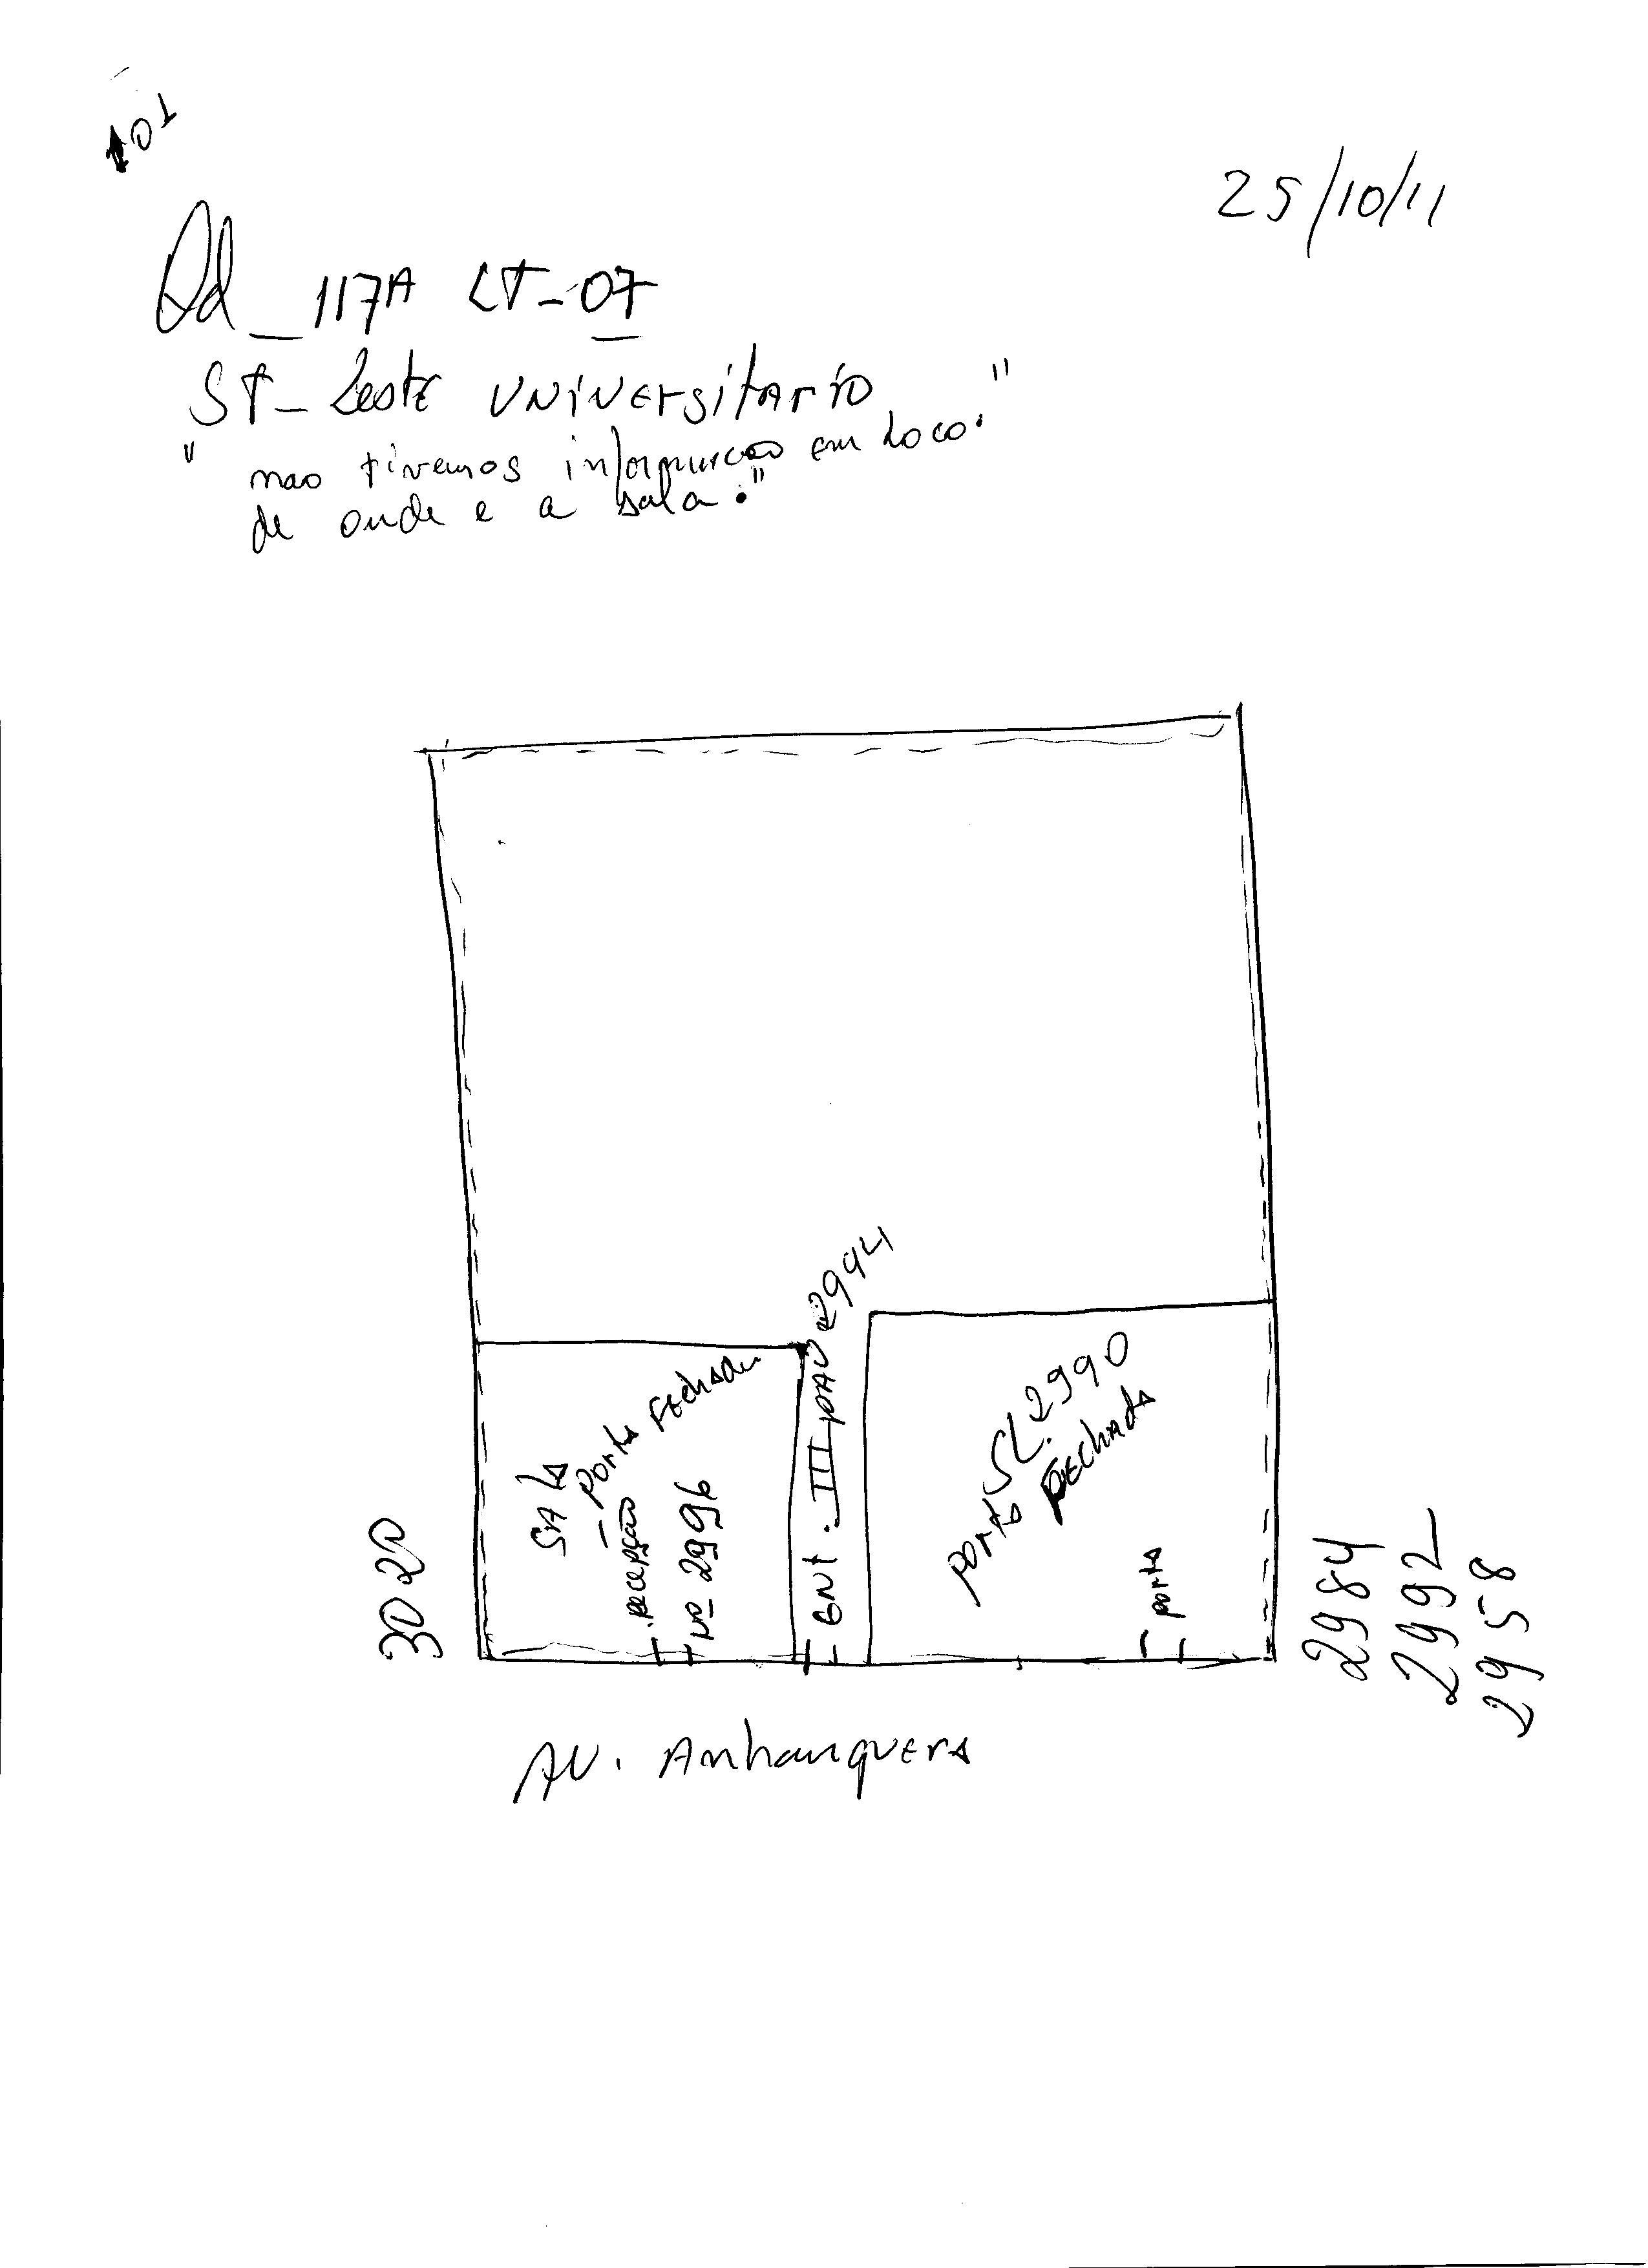 101
25/10/11
Qd_117A LT-07
ST- Leste UNiVErsitArio
"não tivemos informação em Loco."
de onde e a sala."
2994
Ent. III pav
SALA
- PortA FEchAdA
recepção
Nº- 2996
SL. 2990
PortA FEchAdA
portA
3020
2984
2992
2958
AV. AnhanguerA